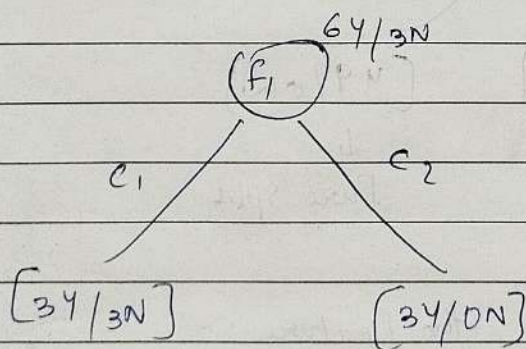 6Y/3N
f1
C1 C2
[3Y/3N] [3Y/0N]